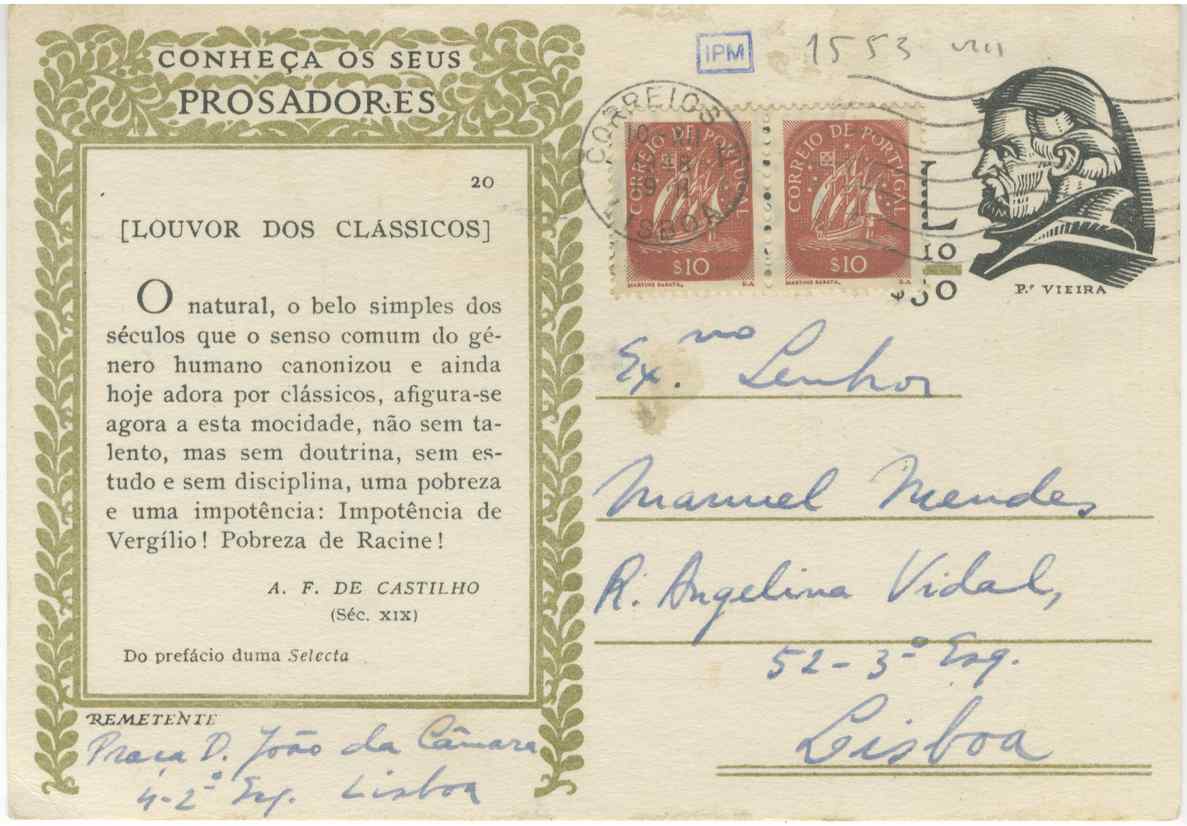 CONHEÇA OS SEUS
PROSADORES
20
[LOUVOR DOS CLÁSSICOS]
O natural, o belo simples dos
séculos que o senso comum do gé-
nero humano canonizou e ainda
hoje adora por clássicos, afigura-se
agora a esta mocidade, não sem ta-
lento, mas sem doutrina, sem es-
tudo e sem disciplina, uma pobreza
e uma impotência: Impotência de
Vergílio! Pobreza de Racine!
A. F. DE CASTILHO
(Séc. XIX)
Do prefácio duma Selecta
REMETENTE
Praça D. João da Câmara
4-2º Esq. Lisboa
IPM
1553
CORREIOS
LISBOA
CORREIO DE PORTUGAL
$10
MARTINS BARATA.
CORREIO DE PORTUGAL
$10
MARTINS BARATA.
10
$30
P.e VIEIRA
Ex.mo Senhor
Manuel Mendes
R. Angelina Vidal,
52-3º Esq.
Lisboa